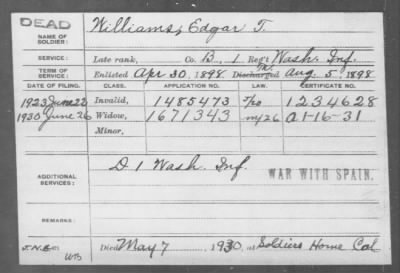 DEAD
NAME OF SOLDIER: Williams, Edgar T.
SERVICE: Late rank, Co. B, 1 Reg't Wash. Inf.
TERM OF SERVICE: Enlisted Apr 30, 1898 Discharged Aug. 5, 1898
DATE OF FILING. CLASS. APPLICATION NO. LAW. CERTIFICATE NO.
1923 June 22 Invalid, 1485473 1234628
1930 June 26 Widow, 1671343 a1-16-31
Minor,
ADDITIONAL SERVICES: D 1 Wash. Inf.
WAR WITH SPAIN.
REMARKS:
Died May 7 1930, at Soldiers Home Cal